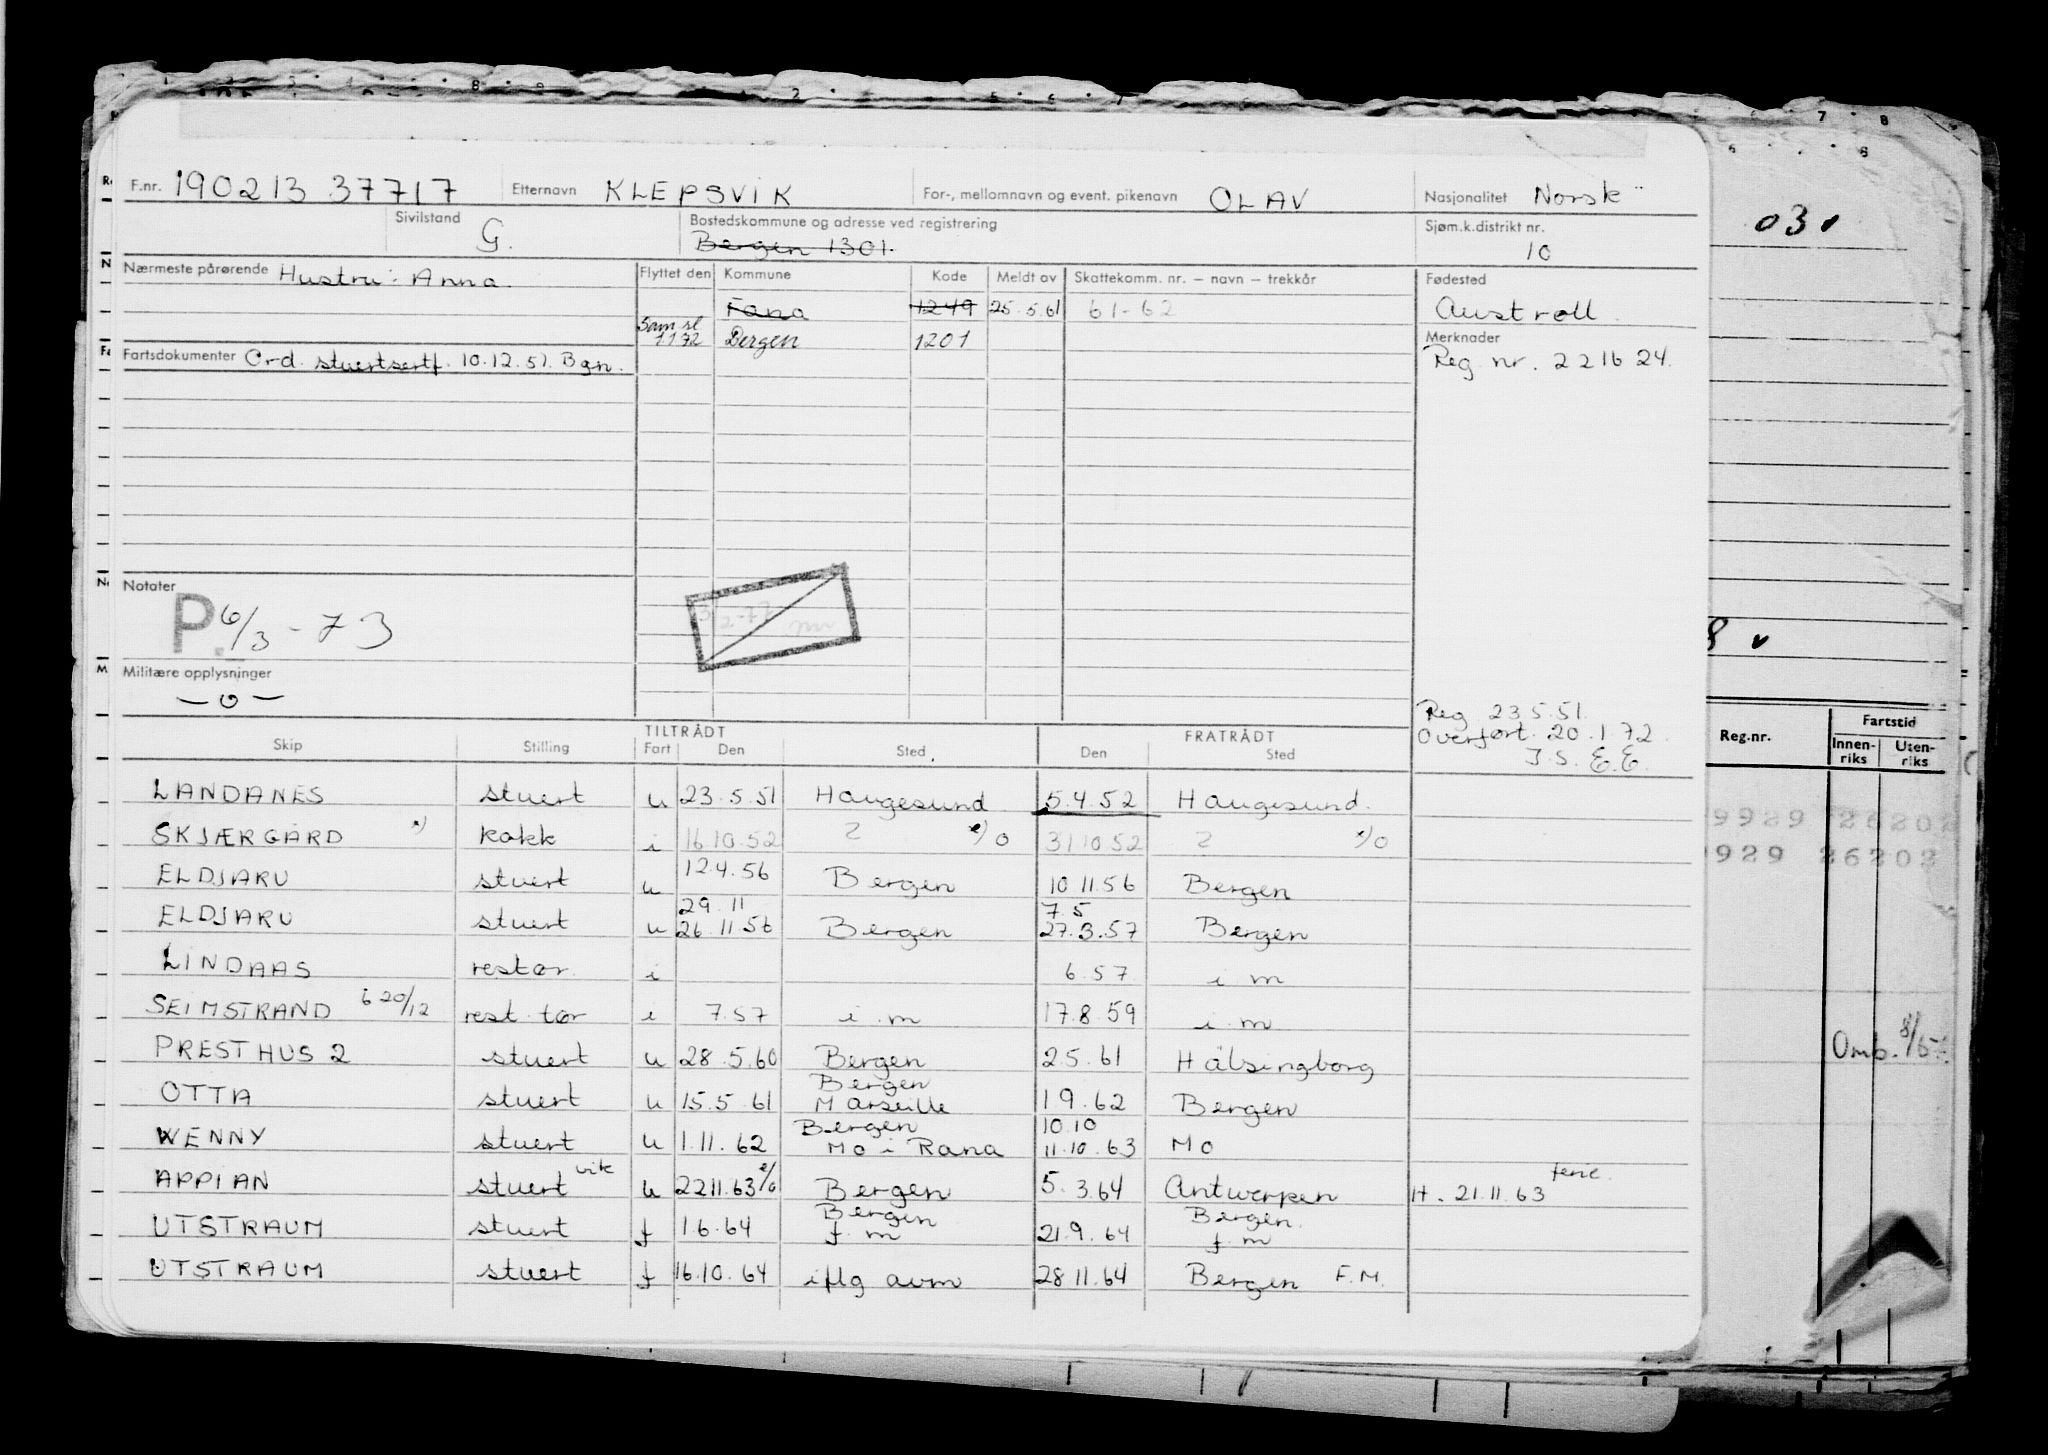 F.nr. 190213 37717 Etternavn KLEPSVIK For-, mellomnavn og event. pikenavn OLAV Nasjonalitet Norsk
Sivilstand G. Bostedskommune og adresse ved registrering Bergen 1301. Sjøm.k.distrikt nr. 10
Nærmeste pårørende Hustru: Anna Flyttet den Kommune Kode Meldt av Skattekomm. nr. — navn — trekkår Fødested
Fana 1249 25.5.61 61-62 Austroll
Sam sl 1 1 72 Bergen 1201 Merknader
Fartsdokumenter Ord. stuertsertf. 10.12.51. Bgn. Reg. nr. 221624.
Notater
P. 6/3 - 73
Militære opplysninger
— o —
Reg 23.5.51
Overført 20.1.72
I.S. E.E.
TILTRÅDT FRATRÅDT
Skip Stilling Fart Den Sted Den Sted
LANDANES stuert u 23.5.51 Haugesund 5.4.52 Haugesund.
SKJÆRGÅRD x) kokk i 16 10.52 2 x) 0 31 10 52 2 x) 0
ELDJARU stuert u 12.4.56 Bergen 10 11.56 Bergen
29.11 7.5
ELDJARU stuert u 26.11.56 Bergen 27.3.57 Bergen
LINDAAS restør. i 6.57 i m
SEIMSTRAND 6 20/12 rest. tør i 7.57 i m 17.8.59 i m
PRESTHUS 2 stuert u 28.5.60 Bergen 2.5.61 Hälsingborg
Bergen
OTTA stuert u 15.5.61 Marseille 1 9.62 Bergen
Bergen 10.10
WENNY stuert u 1.11.62 Mo i Rana 11.10.63 Mo
APPIAN stuert vik u 22 11.63 Bergen 5.3.64 Antwerpen H. 21.11.63 ferie.
Bergen Bergen.
UTSTRAUM stuert f 1.6.64 f m 21.9.64 f m
UTSTRAUM stuert f 16.10.64 iflg avm 28 11.64 Bergen F.M.
030
8
Reg.nr. Fartstid
Innen-riks Uten-riks
9929 26202
9929 26202
Omb.